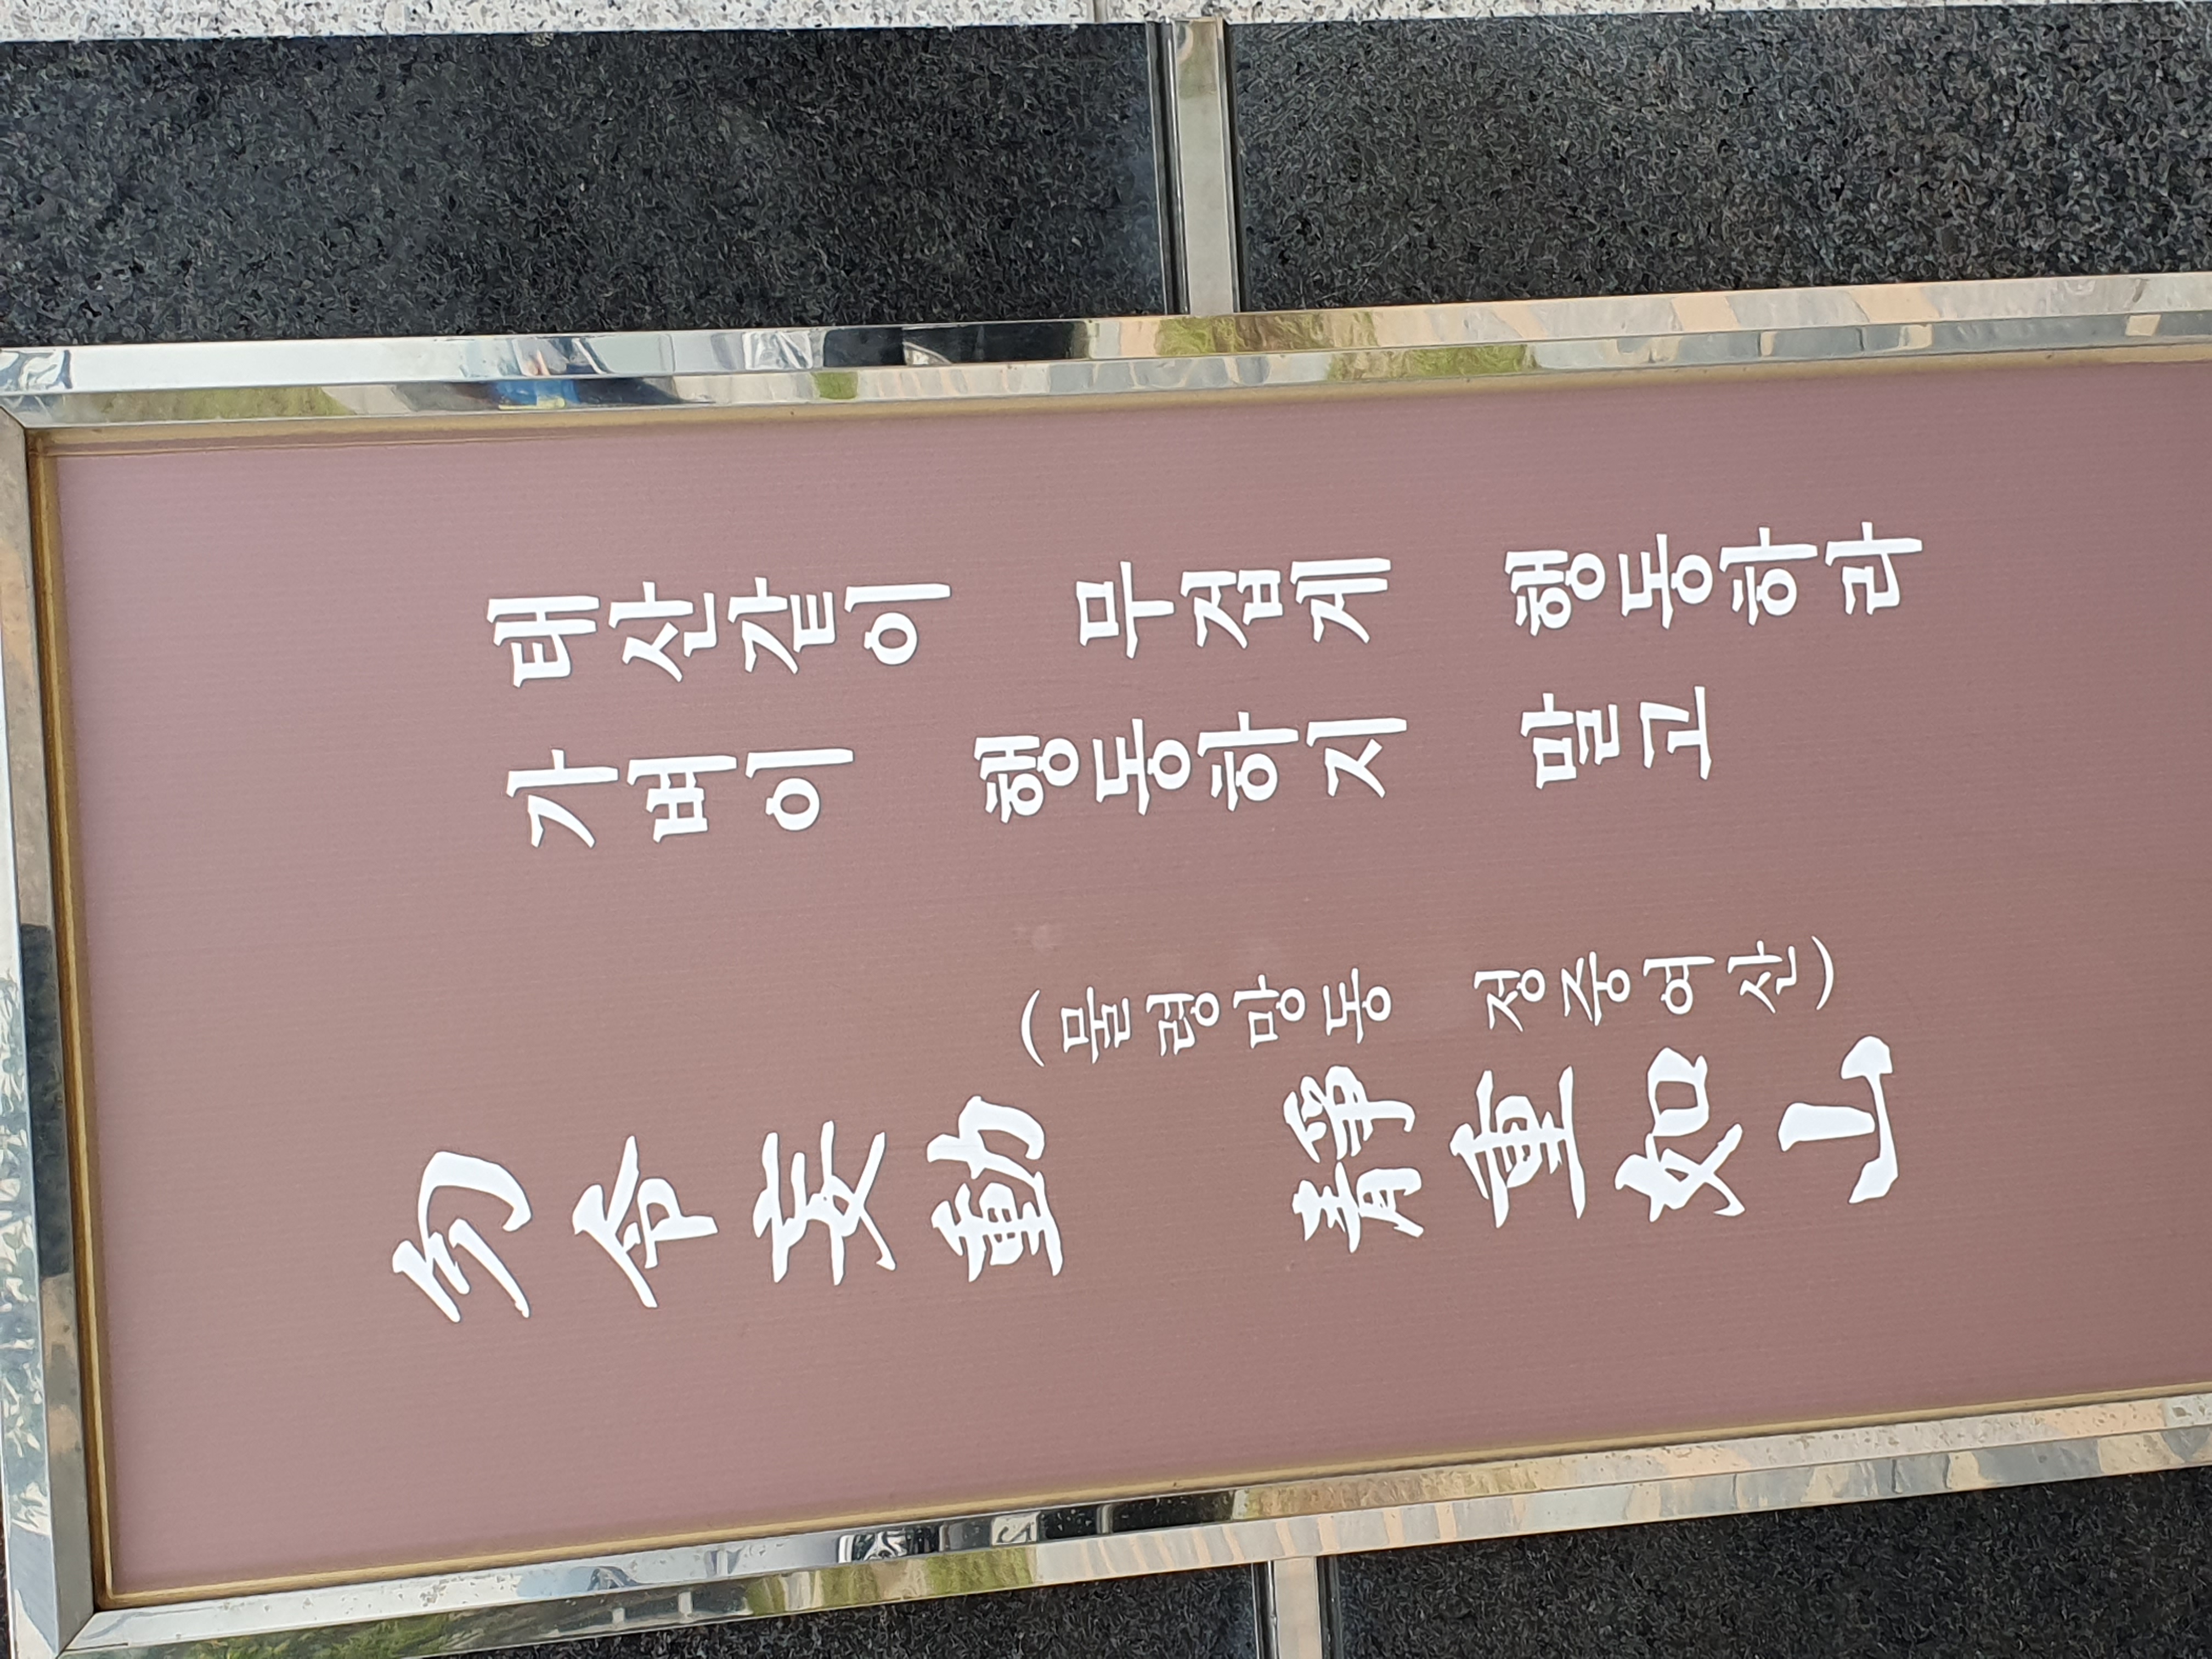 勿令妄動 靜重如山
(물령망동 정중여산)
가벼이 행동하지 말고
태산같이 무겁게 행동하라